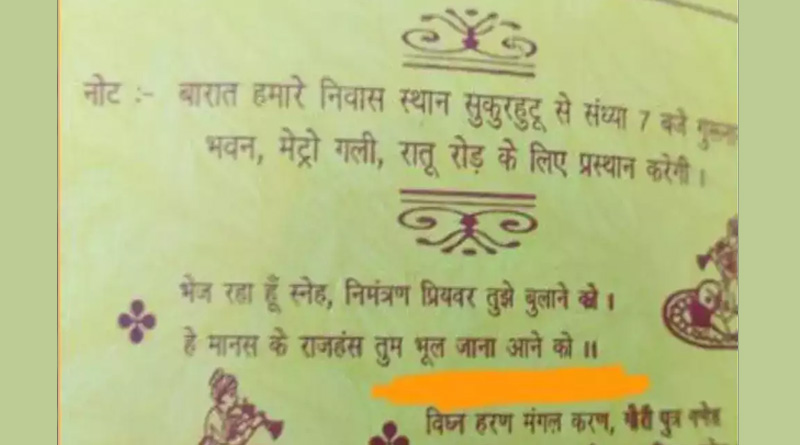 नोट :- बारात हमारे निवास स्थान सुकुरहुटू से संध्या 7 बजे
भवन, मेट्रो गली, रातू रोड़ के लिए प्रस्थान करेगी ।
भेज रहा हूँ स्नेह, निमंत्रण प्रियवर तुझे बुलाने को ।
हे मानस के राजहंस तुम भूल जाना आने को ॥
विघ्न हरण मंगल करण, गौरी पुत्र गणेश